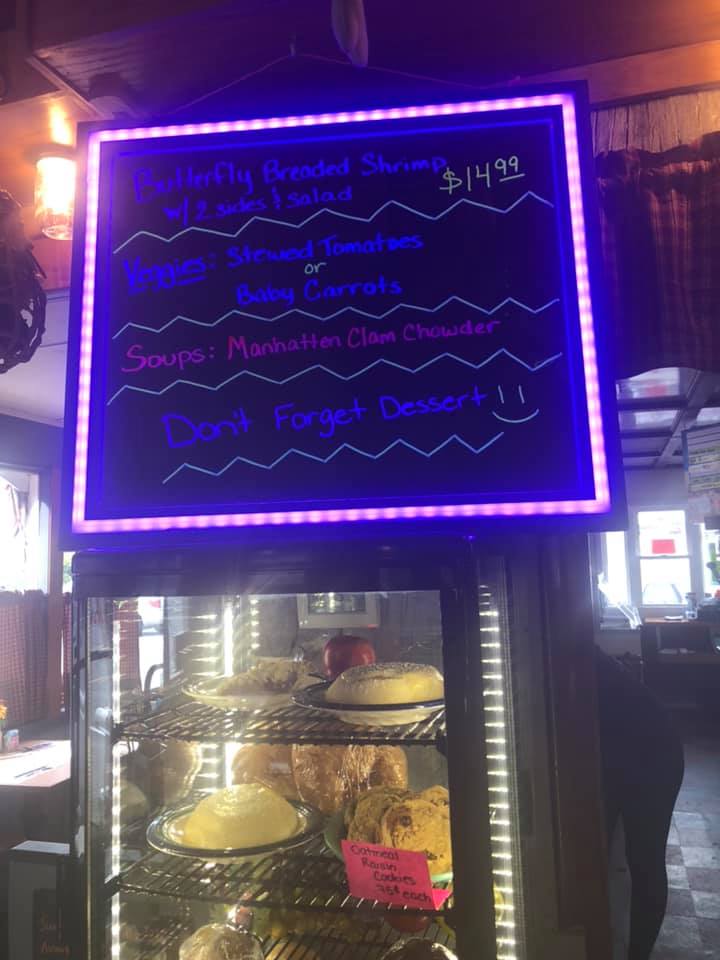 Butterfly Breaded Shrimp $14.99
w/ 2 sides & salad
Veggies: Stewed Tomatoes
or
Baby Carrots
Soups: Manhatten Clam Chowder
Don't Forget Dessert
Oatmeal
Raisin
Cookies
75¢ each